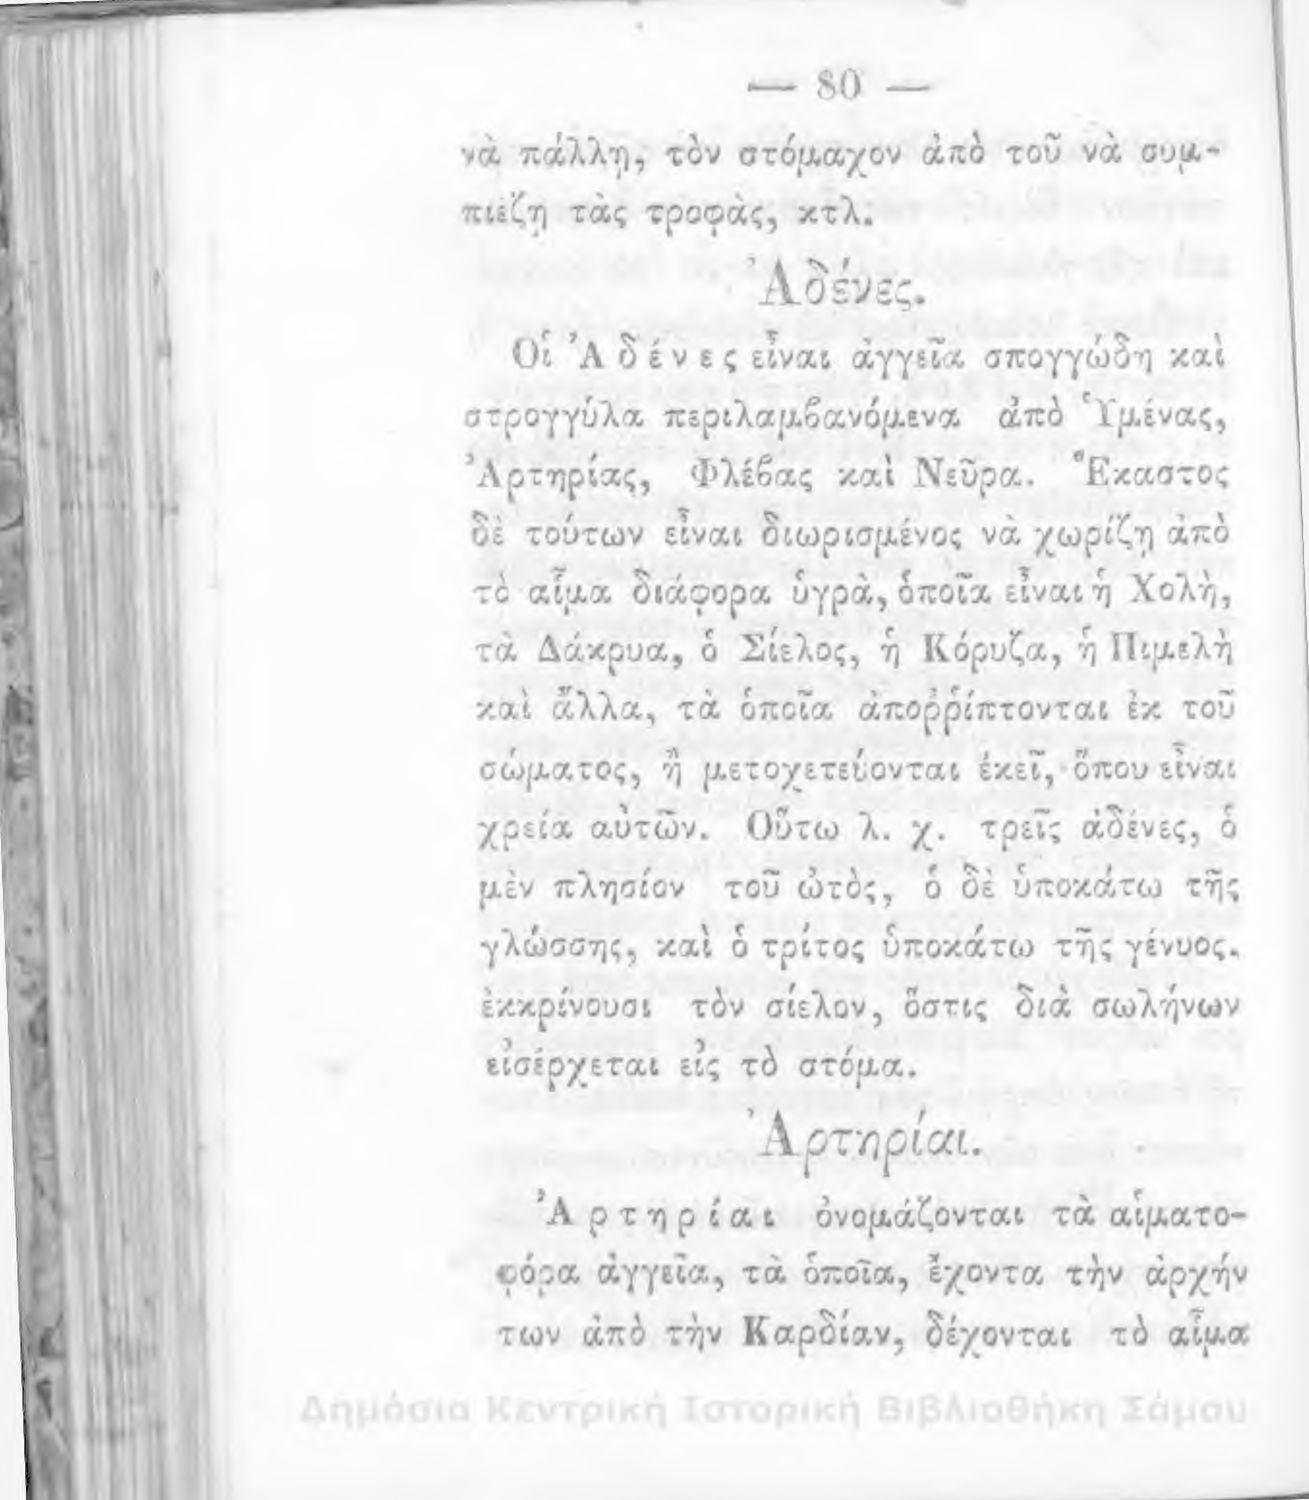 — 80 —
νὰ πάλλῃ, τὸν στόμαχον ἀπὸ τοῦ νὰ συμ-
πιέζῃ τὰς τροφὰς, κτλ.
Ἀδένες.
Οἱ Ἀδένες εἶναι ἀγγεῖα σπογγώδη καὶ
στρογγύλα περιλαμβανόμενα ἀπὸ Ὑμένας,
Ἀρτηρίας, Φλέβας καὶ Νεῦρα. Ἕκαστος
δὲ τούτων εἶναι διωρισμένος νὰ χωρίζῃ ἀπὸ
τὸ αἷμα διάφορα ὑγρὰ, ὁποῖα εἶναι ἡ Χολὴ,
τὰ Δάκρυα, ὁ Σίελος, ἡ Κόρυζα, ἡ Πιμελὴ
καὶ ἄλλα, τὰ ὁποῖα ἀποῤῥίπτονται ἐκ τοῦ
σώματος, ἢ μετοχετεύονται ἐκεῖ, ὅπου εἶναι
χρεία αὐτῶν. Οὕτω λ. χ. τρεῖς ἀδένες, ὁ
μὲν πλησίον τοῦ ὠτὸς, ὁ δὲ ὑποκάτω τῆς
γλώσσης, καὶ ὁ τρίτος ὑποκάτω τῆς γένυος.
ἐκκρίνουσι τὸν σίελον, ὅστις διὰ σωλήνων
εἰσέρχεται εἰς τὸ στόμα.
Ἀρτηρίαι.
Ἀρτηρίαι ὀνομάζονται τὰ αἱματο-
φόρα ἀγγεῖα, τὰ ὁποῖα, ἔχοντα τὴν ἀρχήν
των ἀπὸ τὴν Καρδίαν, δέχονται τὸ αἷμα
Δημόσια Κεντρική Ιστορική Βιβλιοθήκη Σάμου